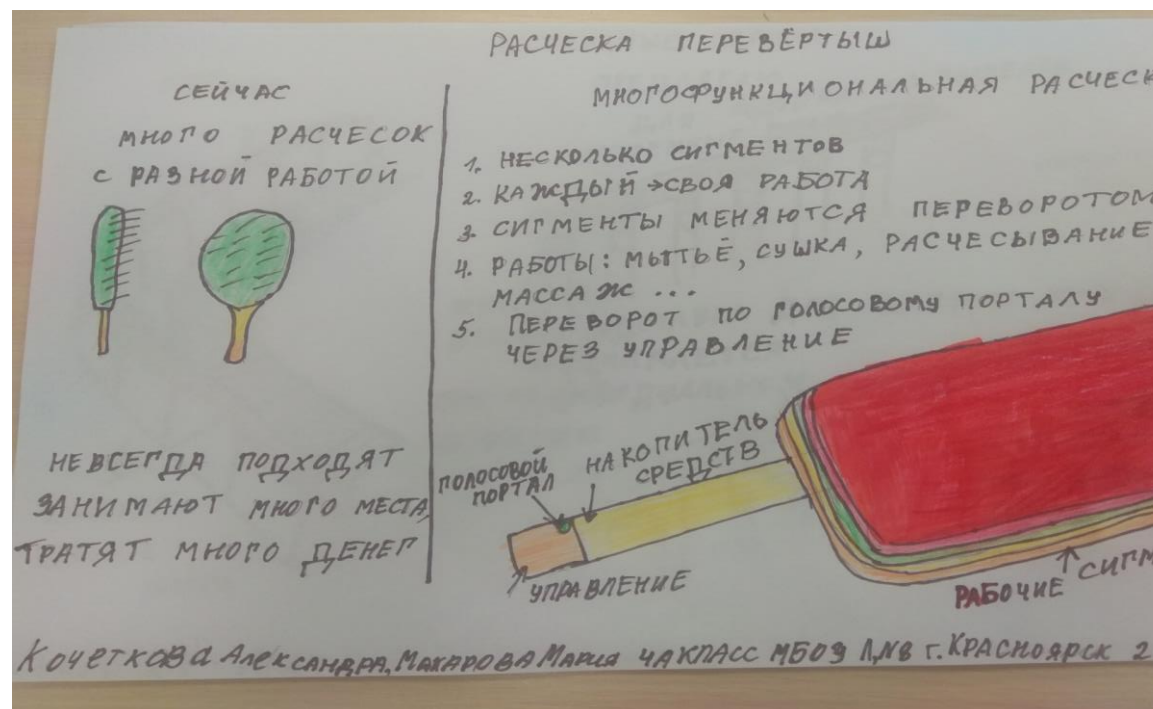 РАСЧЕСКА ПЕРЕВЁРТЫШ
СЕЙЧАС
МНОГО РАСЧЕСОК
С РАЗНОЙ РАБОТОЙ
НЕВСЕГДА ПОДХОДЯТ
ЗАНИМАЮТ МНОГО МЕСТА,
ТРАТЯТ МНОГО ДЕНЕГ
МНОГОФУНКЦИОНАЛЬНАЯ РАСЧЕСК
1. НЕСКОЛЬКО СИГМЕНТОВ
2. КАЖДЫЙ → СВОЯ РАБОТА
3. СИГМЕНТЫ МЕНЯЮТСЯ ПЕРЕВОРОТОМ
4. РАБОТЫ: МЫТЬЁ, СУШКА, РАСЧЕСЫВАНИЕ
МАССАЖ ...
5. ПЕРЕВОРОТ ПО ГОЛОСОВОМУ ПОРТАЛУ
ЧЕРЕЗ УПРАВЛЕНИЕ
ГОЛОСОВОЙ
ПОРТАЛ
НАКОПИТЕЛЬ
СРЕДСТВ
УПРАВЛЕНИЕ
РАБОЧИЕ СИГМ
Кочеткова Александра, Махарова Мария 4А КЛАСС МБОУ Л№8 г. КРАСНОЯРСК 2